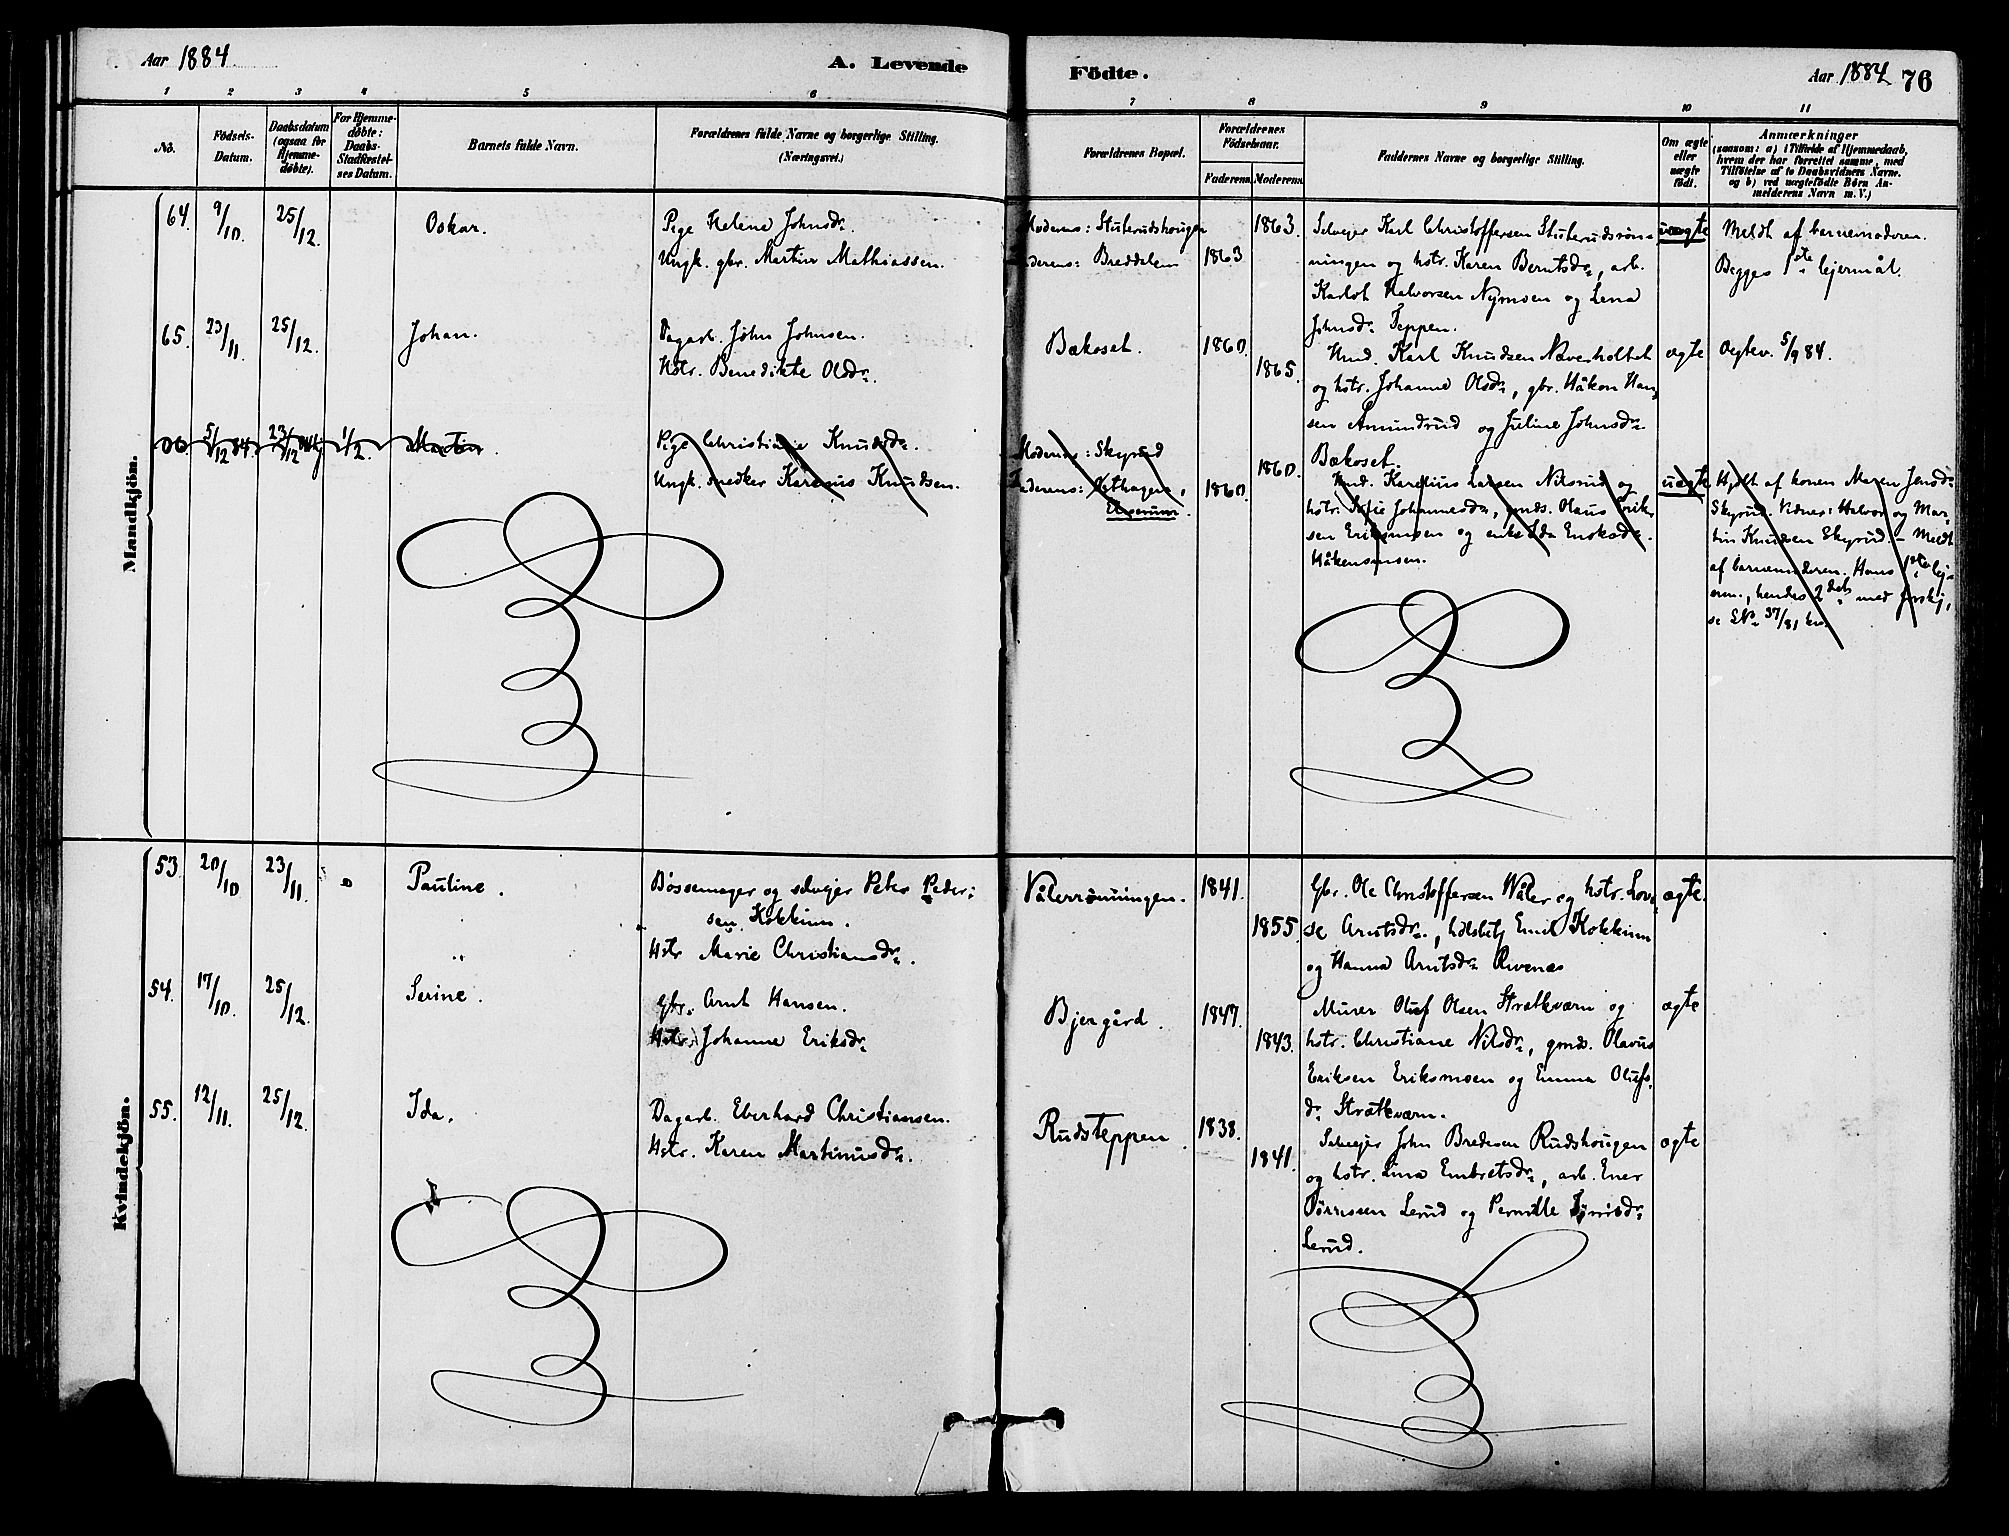 Aar 1884
A. Levende
Födte.
Aar 1884
76
1 2 3 4 5 6 7 8 9 10 11
No.
Födsels-
Datum.
Daabsdatum
(ogsaa for
Hjemme-
döbte).
For Hjemme-
döbte:
Daabs-
Stadfæstel-
ses Datum.
Barnets fulde Navn.
Forældrenes fulde Navne og borgerlige Stilling.
(Næringsvei.)
Forældrenes Bopæl.
Forældrenes
Födselsaar.
Faderens. Moderens.
Faddernes Navne og borgerlige Stilling.
Om ægte
eller
uægte
födt.
Anmærkninger
(saasom: a) i Tilfælde af Hjemmedaab,
hvem der har forrettet samme, med
Tilföielse af to Daabsvidners Navne.
og b) ved uægtefödte Börn An-
melderens Navn m. V.)
Mandkjön.
64. 9/10. 25/12. Oskar.
Pige Helene Johnsdr.
Ungk. gbr. Martin Mathiassen.
Moderens: Stuterudshougen
Faderens: Breddalen
1863
1863.
Selvejer Karl Christoffersen Stuterudsrøn-
ningen og hstr. Karen Berntsdr., arb.
Karlot Halvorsen Nymoen og Lena
Johnsdr. Teppen.
uægte
Meldt af barnemoderen.
Begges 1ste lejermål.
65. 23/11. 25/12. Johan.
Dagarb. John Johnsen.
Hstr. Benedikte Olsdr.
Bækoset.
1860.
1865.
Hmd. Karl Knudsen Næverholtet
og hstr. Johanne Olsdr., gbr. Håkon Han-
sen Amundrud og Juline Johnsdr.
Bækoset.
ægte
Ægtev. 5/9 84.
66 5/12 84. 23/12 84 1/2. Martin.
Pige Christiane Knudsdr.
Ungk. snedker Karenus Knudsen.
Moderens: Skyrud
Faderens: Vethagen,
Elverum.
1860.
1860.
Hmd. Karelius Larsen Nilsrud og
hstr. Sofie Johannesdr., gmds. Olaus Erik-
sen Eriksmoen og enke Ida Enoksdr.
Håkensmoen.
uægte
Hjdbt af konen Maren Jensdr.
Skyrud. Vidner: Halvor og Mar-
tin Knudsen Skyrud. - Meldt
af barnemoderen. Hans 1ste lej-
erm., hendes 2det med forskj.
se No. 37/81 kv.
Kvindekjön.
53. 20/10 23/11. Pauline.
Bøssemager og selvejer Peter Peder-
sen Kokkinn.
Hstr Marie Christiansdr.
Vålerrønningen.
1841.
1855.
Gbr. Ole Christoffersen Våler og hstr. Lovi-
se Arntsdr., Emil Kokkinn
og Hanna Arntsdr. Rivenæs
ægte.
54. 17/10. 25/12. Serine.
Gbr. Arnt Hansen.
Hstr. Johanne Eriksdr.
Bjergård.
1847.
1843.
Murer Oluf Olsen Strætkværn og
hstr. Christiane Nilsdr., gmds. Olavus
Eriksen Eriksmoen og Emma Olufs-
dr. Strætkværn.
ægte
55. 12/11. 25/12. Ida.
Dagarb. Eberhard Christiansen.
Hstr. Karen Martinusdr.
Rudsteppen.
1838.
1841.
Selvejer John Bredesen Rudshougen
og hstr. Lina Embretsdr., arb. Ener
Tørrissen Lerud og Pernille Tørrisdr.
Lerud.
ægte